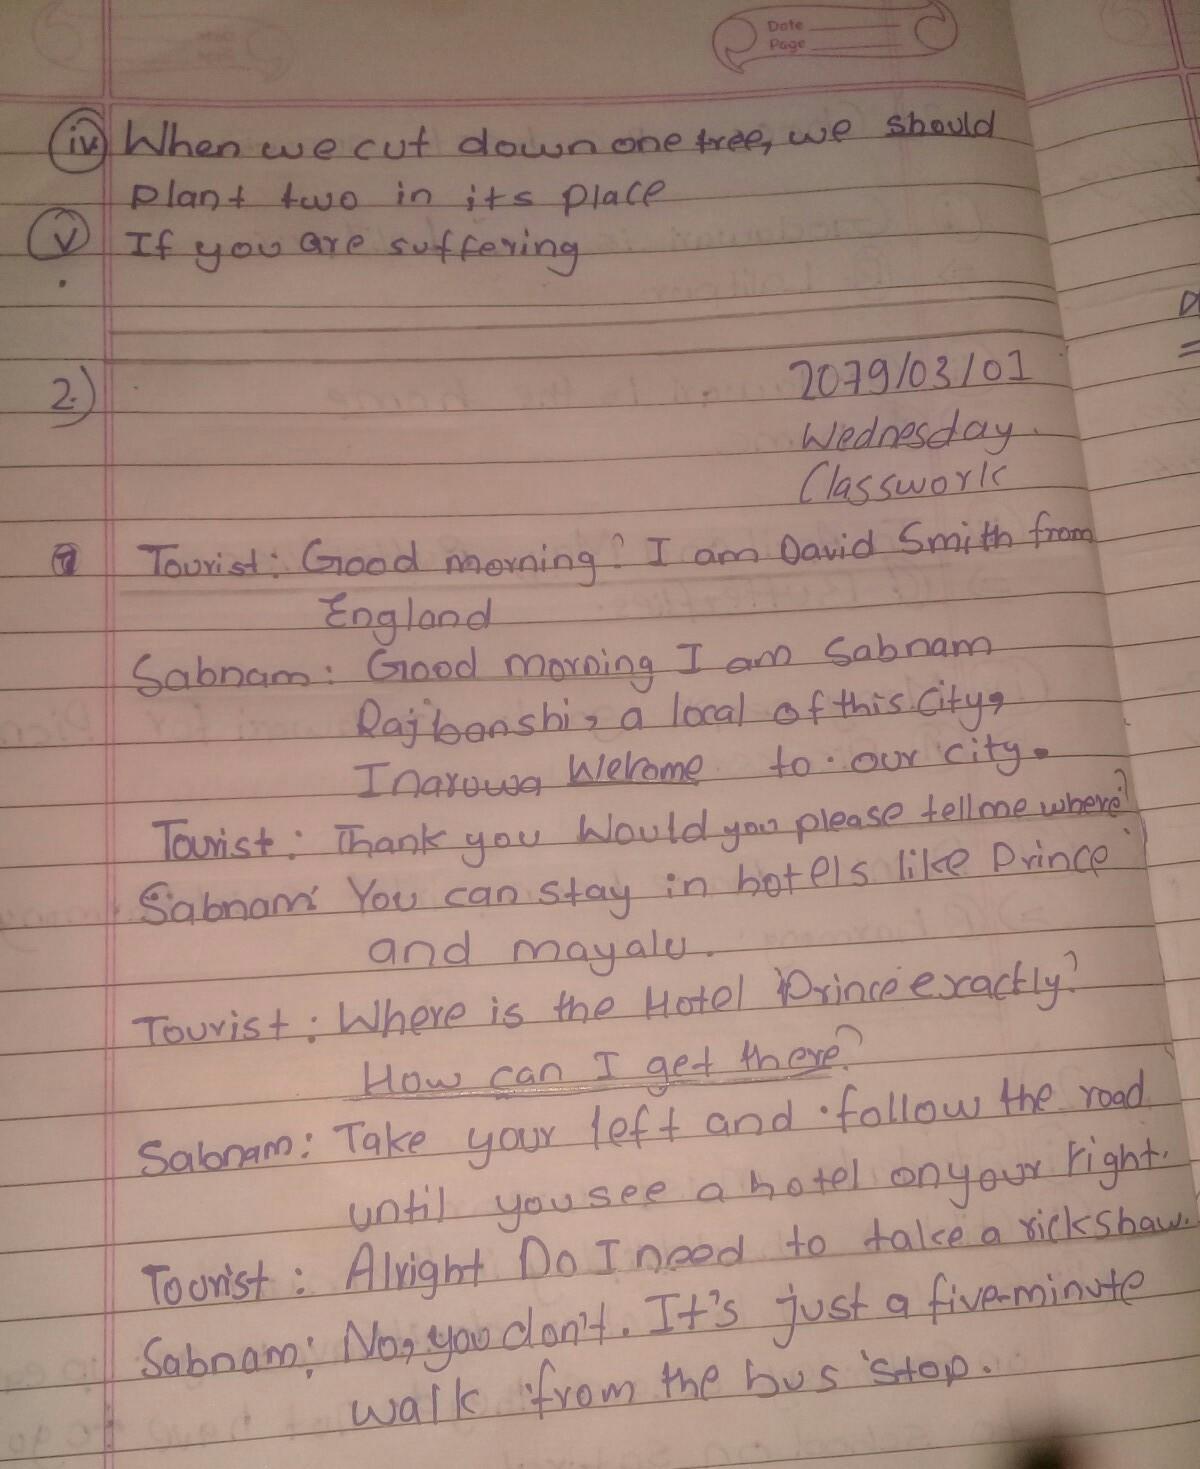 Date
Page
iv When we cut down one tree, we should
plant two in its place
v If you are suffering
2.)
2079/03/01
Wednesday
Classwork
Tourist: Good morning! I am David Smith from
England
Sabnam: Good morning I am Sabnam
Rajbanshi, a local of this city,
Inaruwa Welcome to our city.
Tourist: Thank you Would you please tell me where?
Sabnam: You can stay in hotels like Prince
and mayalu.
Tourist: Where is the Hotel Prince exactly?
How can I get there?
Sabnam: Take your left and follow the road
until you see a hotel on your right.
Tourist: Alright Do I need to take a rickshaw.
Sabnam: No, you don't. It's just a five-minute
walk from the bus stop.